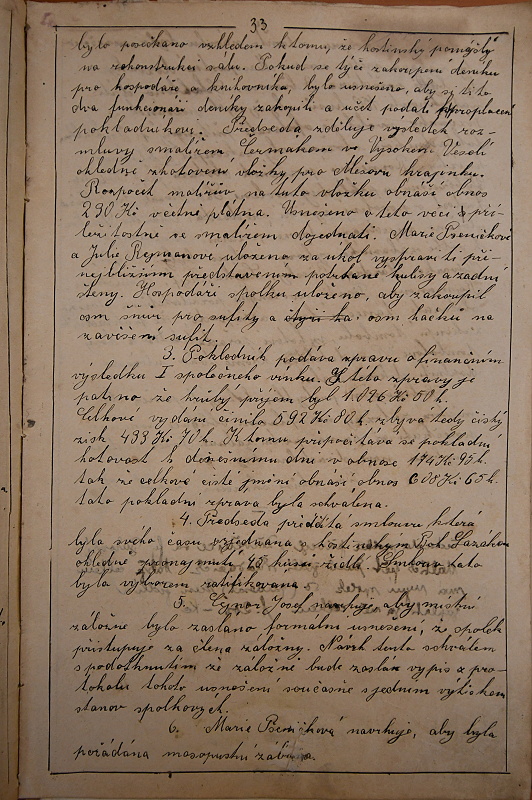 33
bylo posečkáno vzhledem k tomu, že hostinský pomýšlý
na rekonstrukci sálu. Pokud se týče zakoupení deníku
pro hospodáře a knihovníka, bylo usneseno, aby si tito
dva funkcionáři deníky zakoupili a účet podali k proplacení
pokladníkovi. Předseda zděluje výsledek roz-
mluvy s malířem Čermákem ve Vysokém Veselí
ohledně zhotovení vložky pro Alešovu krajinku.
Rozpočet malířův, na tuto vložku obnáší obnos
290 Kč včetně plátna. Usneseno o této věci s pří-
ležitostně se malířem dojednati. Marii Pšeničkové
a Julii Rejmanové uloženo za úkol vyspraviti při
nejbližším představením potrhané kulisy a zadní
stěny. Hospodáři spolku uloženo, aby zakoupil
osm šňůr pro sufity a čtyři ta osm háčků na
zavěšení sufit.
3. Pokladník podává zprávu o finančním
výsledku I společného vínku. Z této zprávy je
patrno že hrubý příjem byl 1.026 Kč 50 h.
Celkové vydání činilo 592 Kč 80 h. zbývá tedy čistý
zisk 433 Kč 70 h. K tomu připočítává se pokladní
hotovost k dnešnímu dni v obnose 174 Kč 95 h.
tak že celkové čisté jmění obnáší obnos 608 Kč 65 h.
tato pokladní zpráva byla schválena.
4. Předseda předčítá smlouvu která
byla svého času ujednána s hostinským
ohledně pronajmutí 45 kusů židlí. Smlouva tato
byla výborem ratifikována.
5. Josef navrhuje, aby místní
záložně bylo zasláno formální usnesení, že spolek
přistupuje za člena záložny. Návrh tento schválen
s podotknutím že záložně bude zaslán výpis z pro-
tokolu tohoto usnešení současně s jedním výtiskem
stanov spolkových.
6. Marie Pšeničková navrhuje, aby byla
pořádána masopustní zábava.